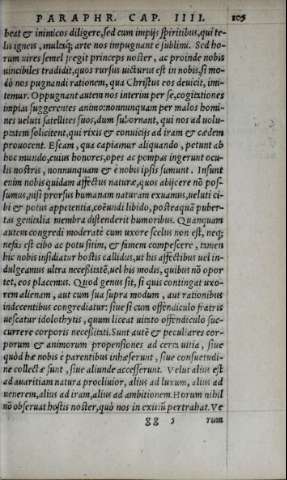 PARAPHR. CAP. IIII. 105
beat & inimicos diligere, sed cum impijs spiritibus, qui te-
lis igneis, multaq; arte nos impugnant e sublimi. Sed ho-
rum uires semel fregit princeps noster, ac proinde nobis
uincibiles tradidit, quos rursus uicturus est in nobis, si mo-
dò nos pugnandi rationem, qua Christus eos deuicit, imi-
temur. Oppugnant autem nos interim per se, cogitationes
impias suggerentes animo: nonnunquam per malos homi-
nes ueluti satellites suos, dum subornant, qui nos ad uolu-
ptatem solicitent, qui rixis & conuicijs ad iram & cædem
prouocent. Escam, qua capiamur aliquando, petunt ab
hoc mundo, cuius honores, opes ac pompas ingerunt ocu-
lis nostris, nonnunquam & è nobis ipsis sumunt. Insunt
enim nobis quidam affectus naturæ, quos abijcere nõ pos-
sumus, nisi prorsus humanam naturam exuamus, ueluti ci-
bi & potus appetentia, coëundi libido, posteaquã puber-
tas genitalia membra distenderit humoribus. Quanquam
autem congredi moderatè cum uxore scelus non est, neq;
nefas est cibo ac potu sitim, & famem compescere, tamen
hic nobis insidiatur hostis callidus, ut his affectibus uel in-
dulgeamus ultra necessitatẽ, uel his modis, quibus nõ opor
tet, eos placemus. Quod genus sit, si quis contingat uxo-
rem alienam, aut cum sua supra modum, aut rationibus
indecentibus congrediatur: siue si cum offendiculo fratris
uescatur idolothytis, quum liceat uitato offendiculo suc-
currere corporis necessitati. Sunt autẽ & peculiares cor-
porum & animorum propensiones ad certa uitia, siue
quòd hæ nobis è parentibus inhæserunt, siue consuetudi-
ne collectæ sunt, siue aliunde accesserunt. Velut alius est
ad auaritiam natura procliuior, alius ad luxum, alius ad
uenerem, alius ad iram, alius ad ambitionem. Horum nihil
nõ obseruat hostis noster, quò nos in exitiũ pertrahat. Ve
gg 5 rum